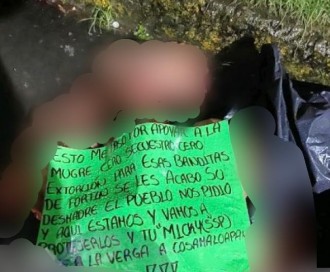 ESTO ME PASO POR APOYAR A LA
MUGRE CERO SECUESTRO CERO
EXTORCIÓN PARA ESAS BANDITAS
DE FORTIN SE LES ACABO SU
DESMADRE EL PUEBLO NOS PIDIO
Y AQUI ESTAMOS Y VAMOS A
PROTEJERLOS Y TU "MICKY (SSP)
A LA VERGA A COSAMALOAPAN